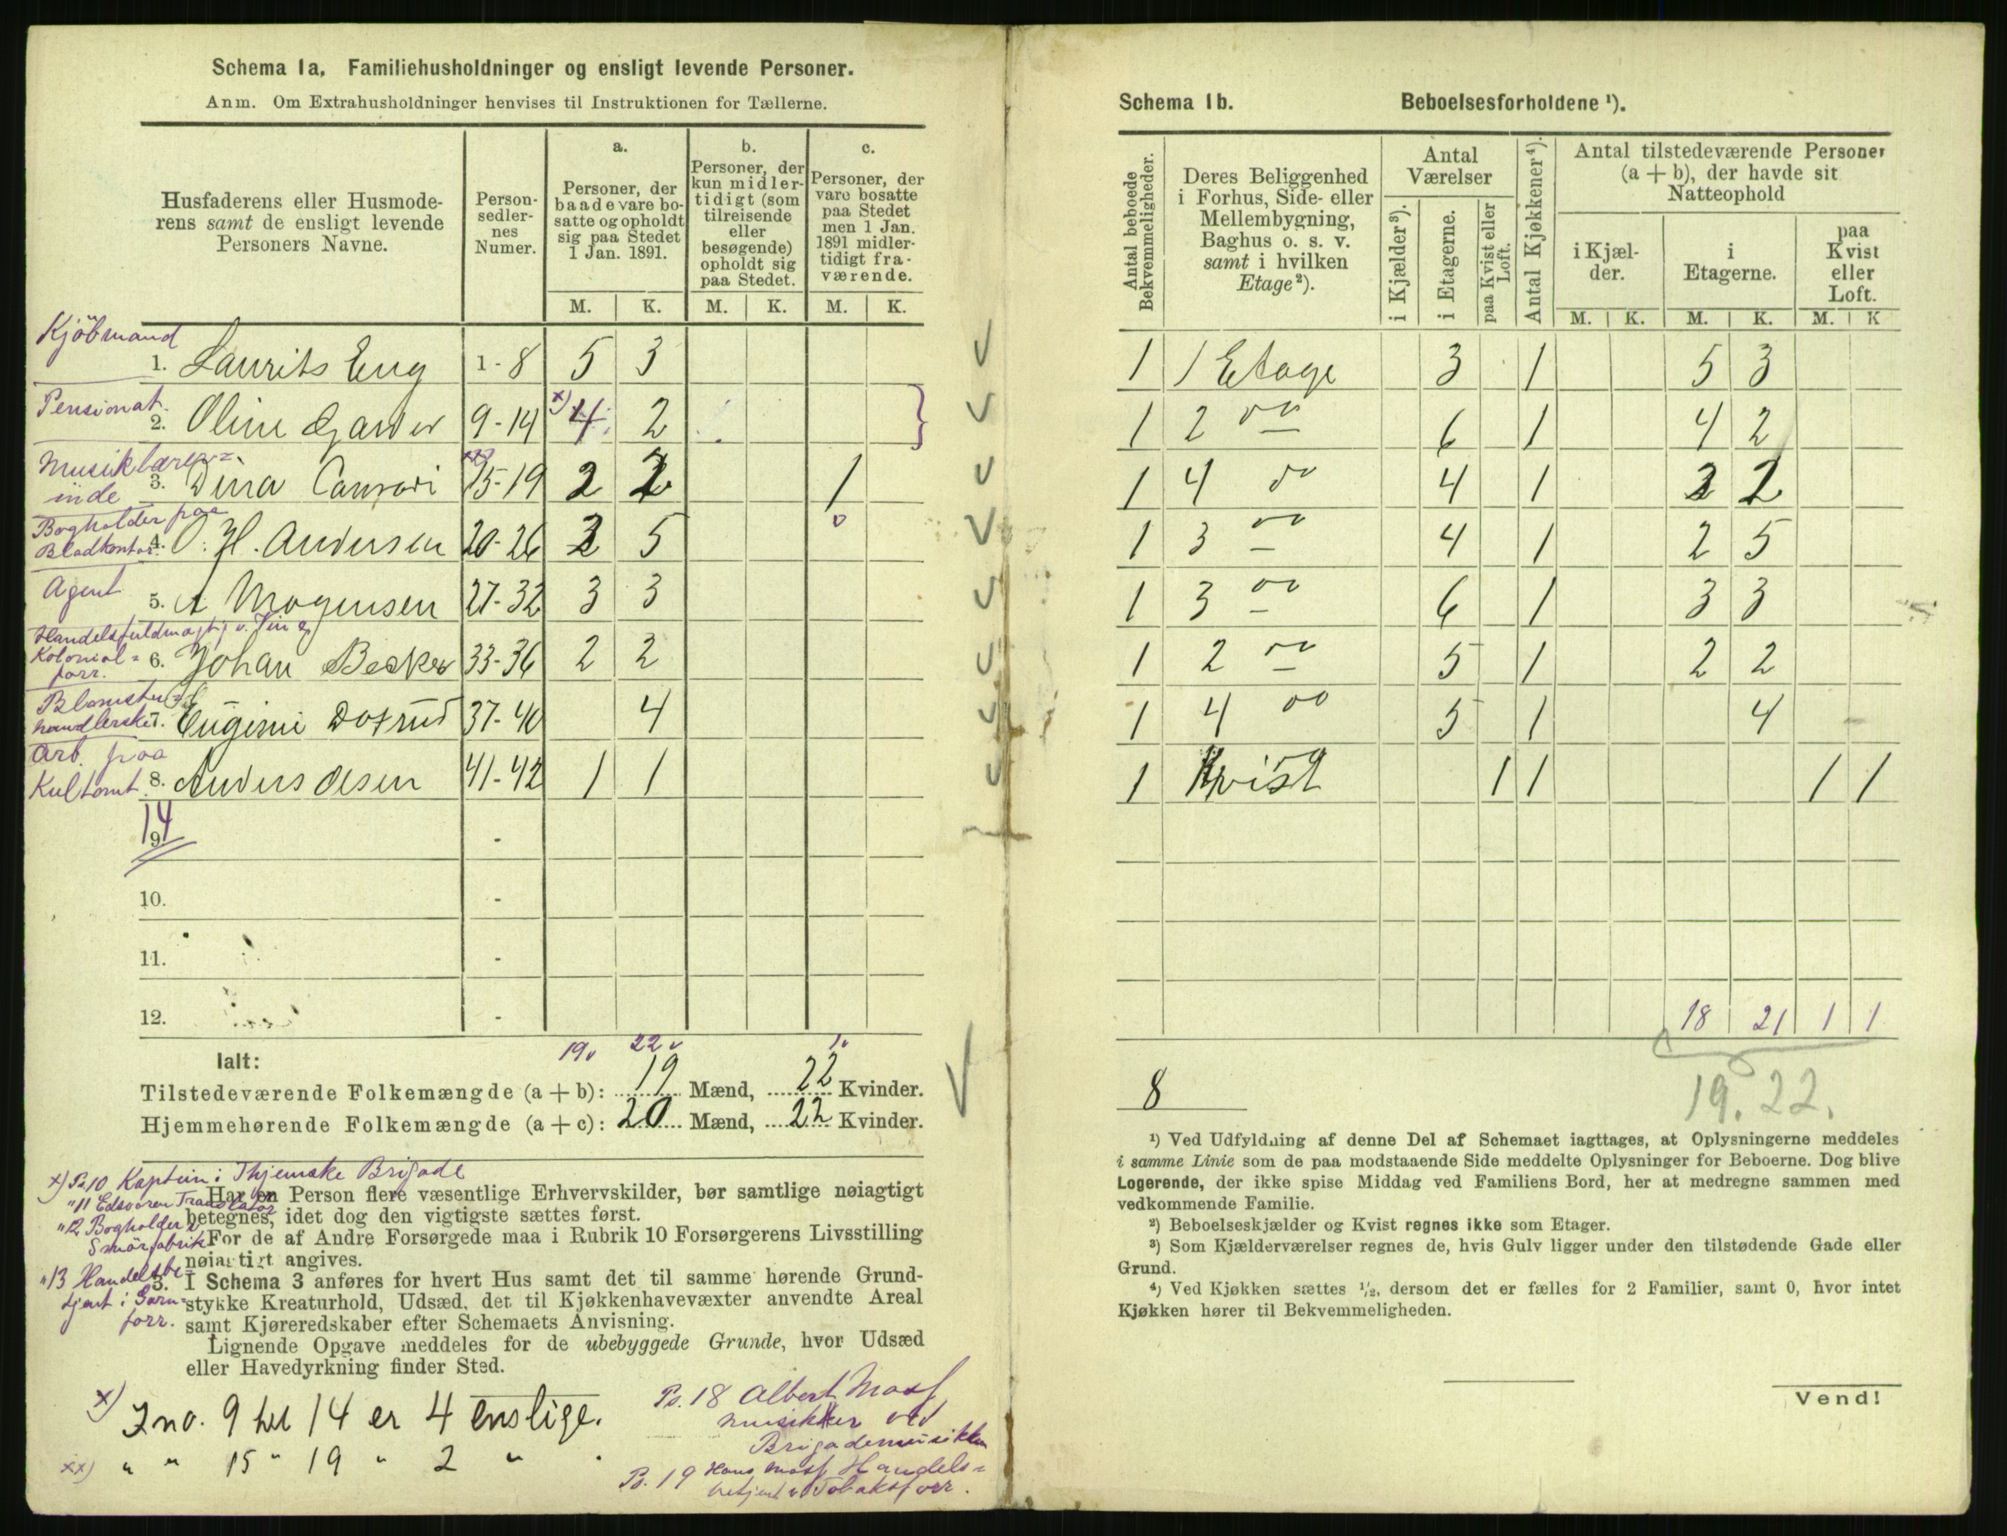 Schema 1a. Familiehusholdninger og ensligt levende Personer.
Anm. Om Extrahusholdninger henvises til Instruktionen for Tællerne.
Husfaderens eller Husmoderens samt de ensligt levende Personers Navne.
Personsedlernes Numer.
a. Personer, der baade vare bosatte og opholdt sig paa Stedet 1 Jan. 1891.
b. Personer, der kun midlertidigt (som tilreisende eller besøgende) opholdt sig paa Stedet.
c. Personer, der vare bosatte paa Stedet men 1 Jan. 1891 midlertidigt fraværende.
M. K. M. K. M. K.
Kjöbmand
1. Laurits Eng 1-8 5 3
Pensionat.
2. Oline Garder 9-14 x) 4 2
Musiklærerinde
3. Dina Conradi xx) 15-19 2 2 1
Bogholder paa Bladkontor
4. O. H. Andersen 20-26 2 5
Agent
5. A Mogensen 27-32 3 3
Handelsfuldmægtig v. Vin og Kolonialforr.
6. Johan Becker 33-36 2 2
Blomsterhandlerske
7. Eugenie Doxrud 37-40 4
Arb. paa Kultomt.
8. Anders Olsen 41-42 1 1
14
9. -
10. -
11. -
12. -
19 22 1
Ialt:
Tilstedeværende Folkemængde (a + b): 19 Mænd, 22 Kvinder.
Hjemmehørende Folkemængde (a + c): 20 Mænd, 22 Kvinder.
x) Ps. 10 Kaptein i Thjemske Brigade
Har en Person flere væsentlige Erhvervskilder, bør samtlige nøiagtigt
" 11 Edsvoren Translatör
betegnes, idet dog den vigtigste sættes først.
" 12 Bogholder v Smörfabrik
For de af Andre Forsørgede maa i Rubrik 10 Forsørgerens Livsstilling
nøiagtigt angives.
" 13 Handelsbetjent i Garnforr.
3. I Schema 3 anføres for hvert Hus samt det til samme hørende Grund-
stykke Kreaturhold, Udsæd, det til Kjøkkenhavevæxter anvendte Areal
samt Kjøreredskaber efter Schemaets Anvisning.
Lignende Opgave meddeles for de ubebyggede Grunde, hvor Udsæd
eller Havedyrkning finder Sted.
x) I no. 9 til 14 er 4 enslige.
xx) " " 15 " 19 " 2 " .
Ps. 18 Albert Moss
musikker ved
Brigademusikken
Ps. 19 Hans Moss Handels-
betjent v Tobaksforr.
Schema 1b. Beboelsesforholdene ¹).
Antal beboede Bekvemmeligheder.
Deres Beliggenhed i Forhus, Side- eller Mellembygning, Baghus o. s. v. samt i hvilken Etage ²).
Antal Værelser
i Kjælder ³).
i Etagerne.
paa Kvist eller Loft.
Antal Kjøkkener ⁴).
Antal tilstedeværende Personer (a + b), der havde sit Natteophold
i Kjælder.
i Etagerne.
paa Kvist eller Loft.
M. K. M. K. M. K
1 1 Etage 3 1 5 3
1 2 do 6 1 4 2
1 4 do 4 1 2 2
1 3 do 4 1 2 5
1 3 do 6 1 3 3
1 2 do 5 1 2 2
1 4 do 5 1 4
1 Kvist 1 1 1 1
18 21 1 1
8
19. 22.
¹) Ved Udfyldning af denne Del af Schemaet iagttages, at Oplysningerne meddeles
i samme Linie som de paa modstaaende Side meddelte Oplysninger for Beboerne. Dog blive
Logerende, der ikke spise Middag ved Familiens Bord, her at medregne sammen med
vedkommende Familie.
²) Beboelseskjælder og Kvist regnes ikke som Etager.
³) Som Kjælderværelser regnes de, hvis Gulv ligger under den tilstødende Gade eller
Grund.
⁴) Ved Kjøkken sættes ½, dersom det er fælles for 2 Familier, samt 0, hvor intet
Kjøkken hører til Bekvemmeligheden.
Vend!